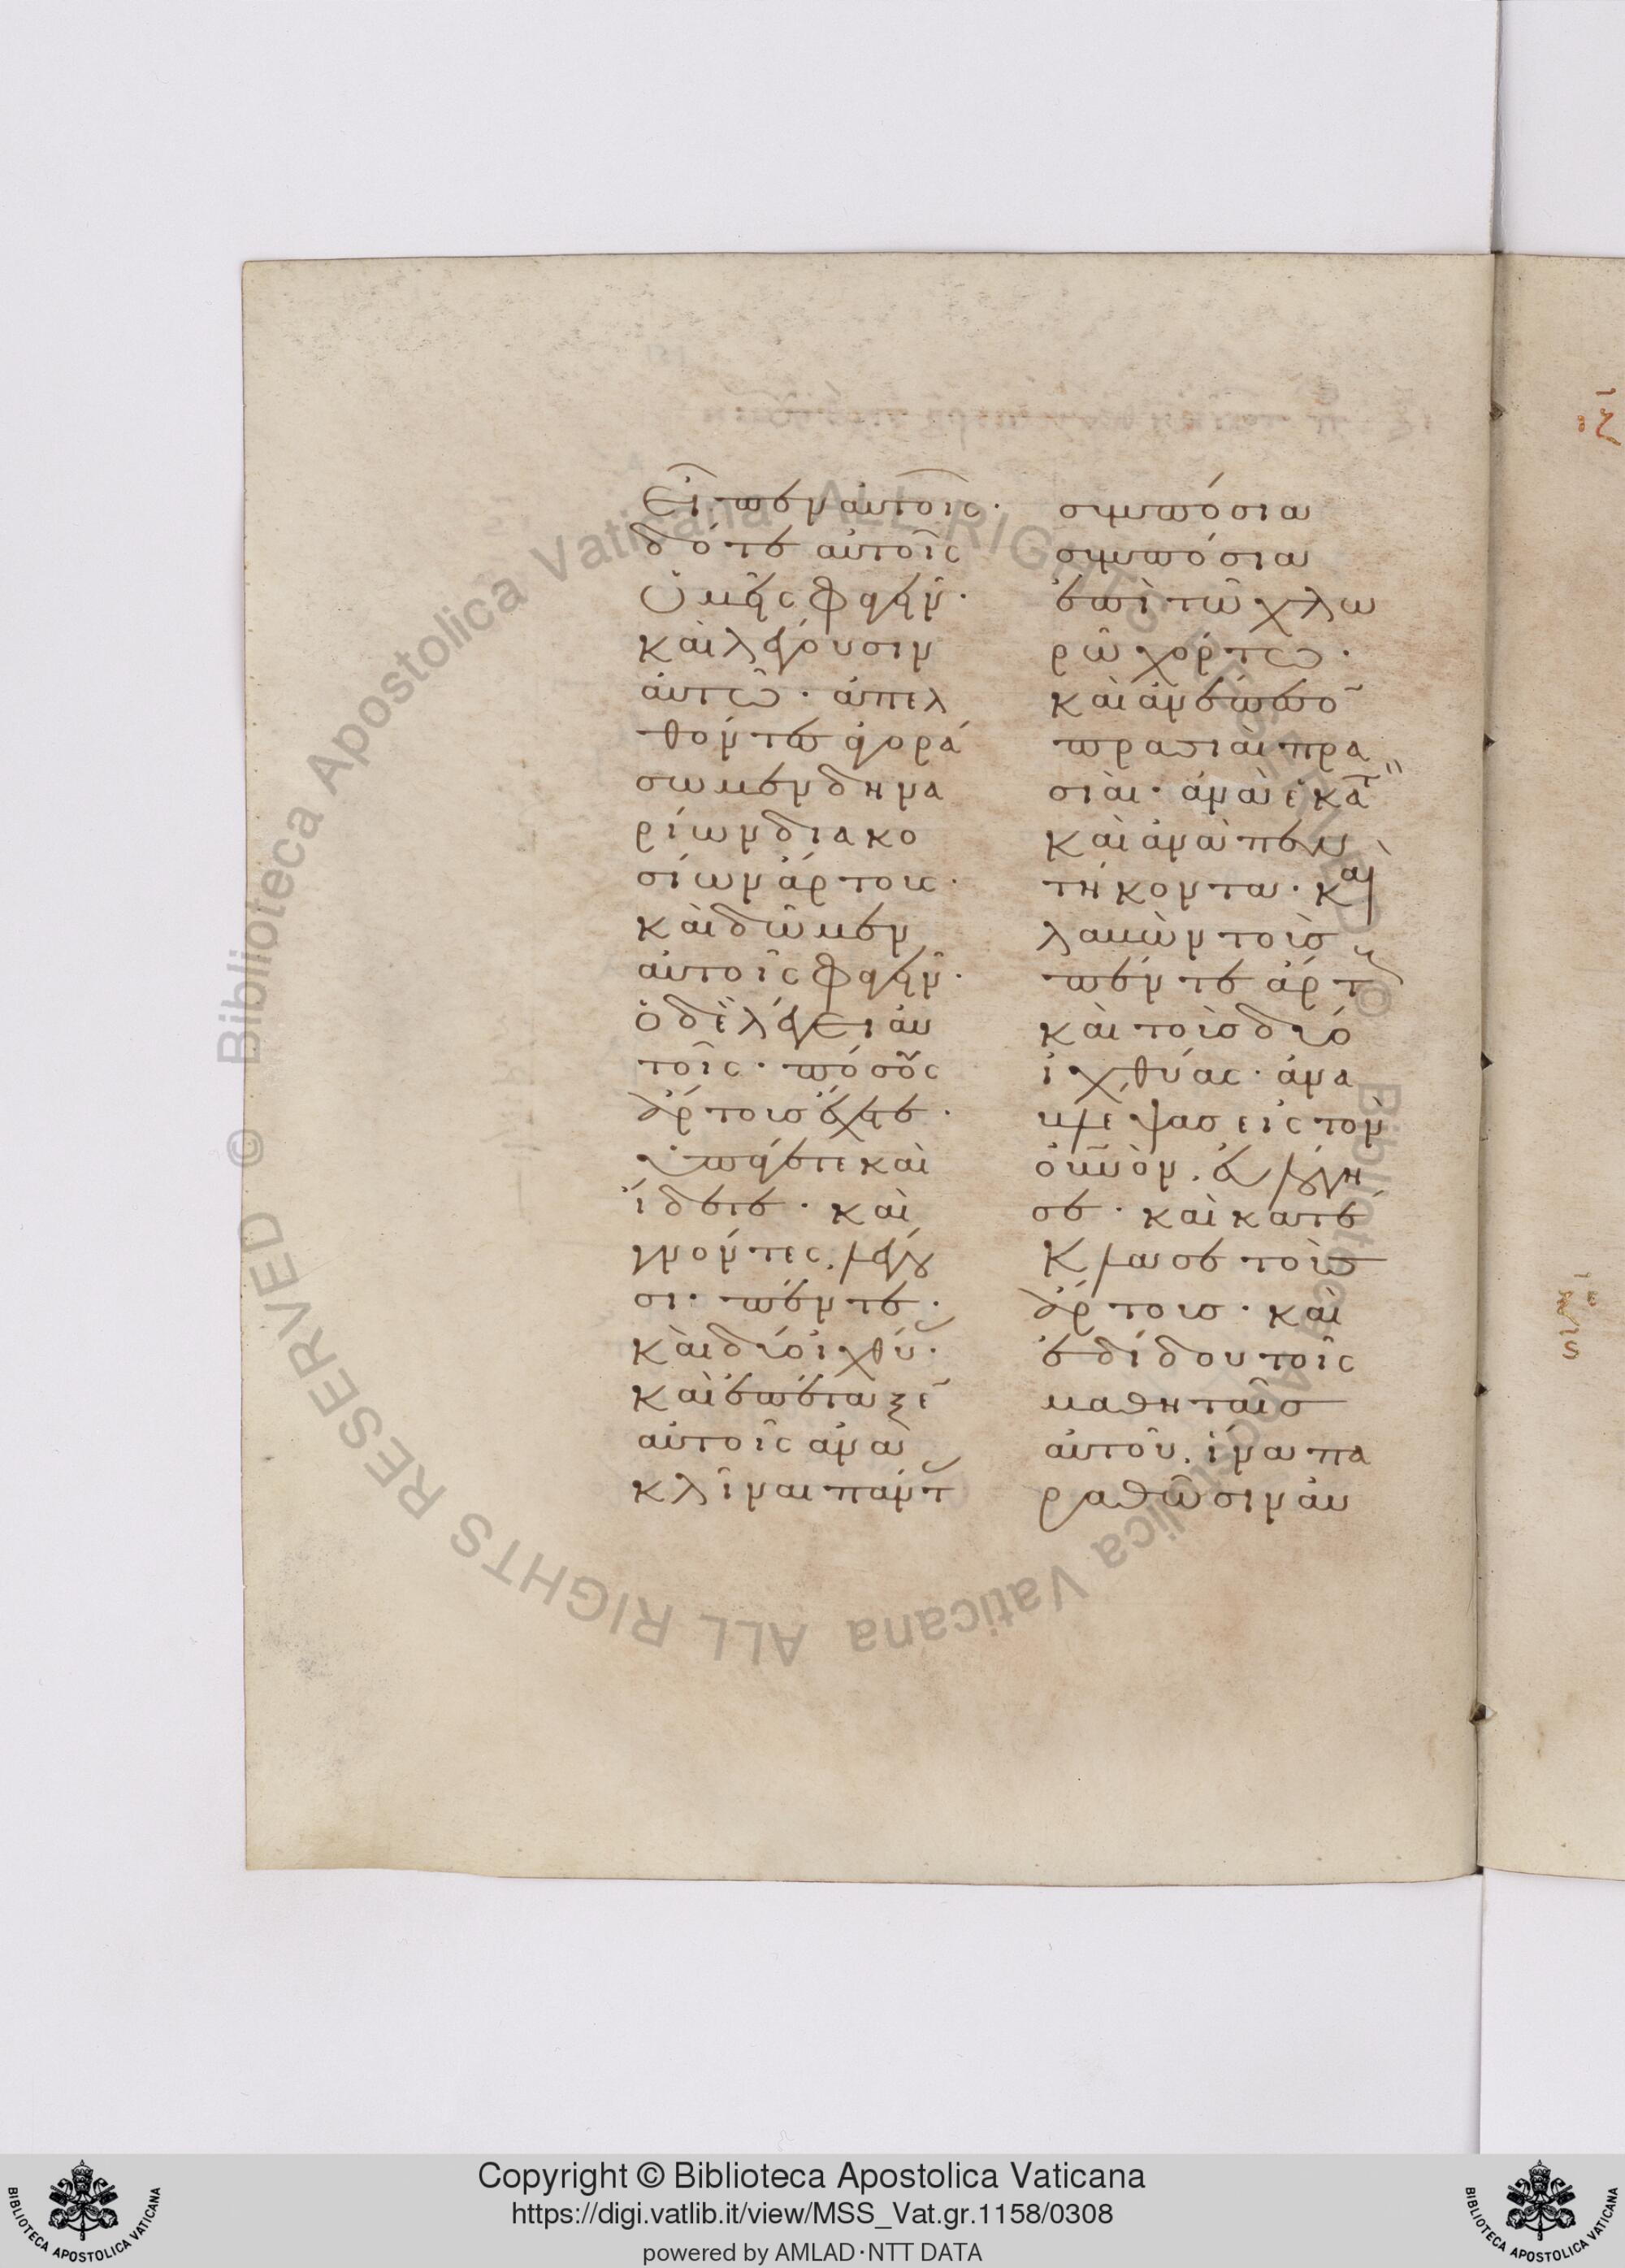 εἶπεν αὐτοῖς·
δότε αὐτοῖς
ὑμεῖς φαγεῖν·
καὶ λέγουσιν
αὐτῶ· ἀπελ
θόντες ἀγορά
σωμεν δηνα
ρίων διακο
σίων ἄρτους·
καὶ δῶμεν
αὐτοῖς φαγεῖν·
ὁ δὲ λέγει αὐ
τοῖς· πόσους
ἄρτους ἔχετε·
ὑπάγετε καὶ
ἴδετε· καὶ
γνόντες λέγου
σι· πέντε·
καὶ δύο ἰχθύ·
καὶ ἐπέταξε
αὐτοῖς ἀνα
κλῖναι πάντ
συμπόσια
συμπόσια
ἐπὶ τῶ χλω
ρῶ χόρτω·
καὶ ἀνέπεσο
πρασιαὶ πρα
σιαί· ἀνὰ ἑκατ
καὶ ἀνὰ πεν
τήκοντα· καὶ
λαβὼν τοὺς
πέντε ἄρτ
καὶ τοὺς δύο
ἰχθύας· ἀνα
βλέψας εἰς τὸν
οὐνὸν· εὐλόγη
σε· καὶ κατέ
κλασε τοὺς
ἄρτους· καὶ
ἐδίδου τοῖς
μαθηταῖς
αὐτοῦ· ἵνα πα
ραθῶσιν αὐ
Copyright © Biblioteca Apostolica Vaticana
https://digi.vatlib.it/view/MSS_Vat.gr.1158/0308
powered by AMLAD·NTT DATA